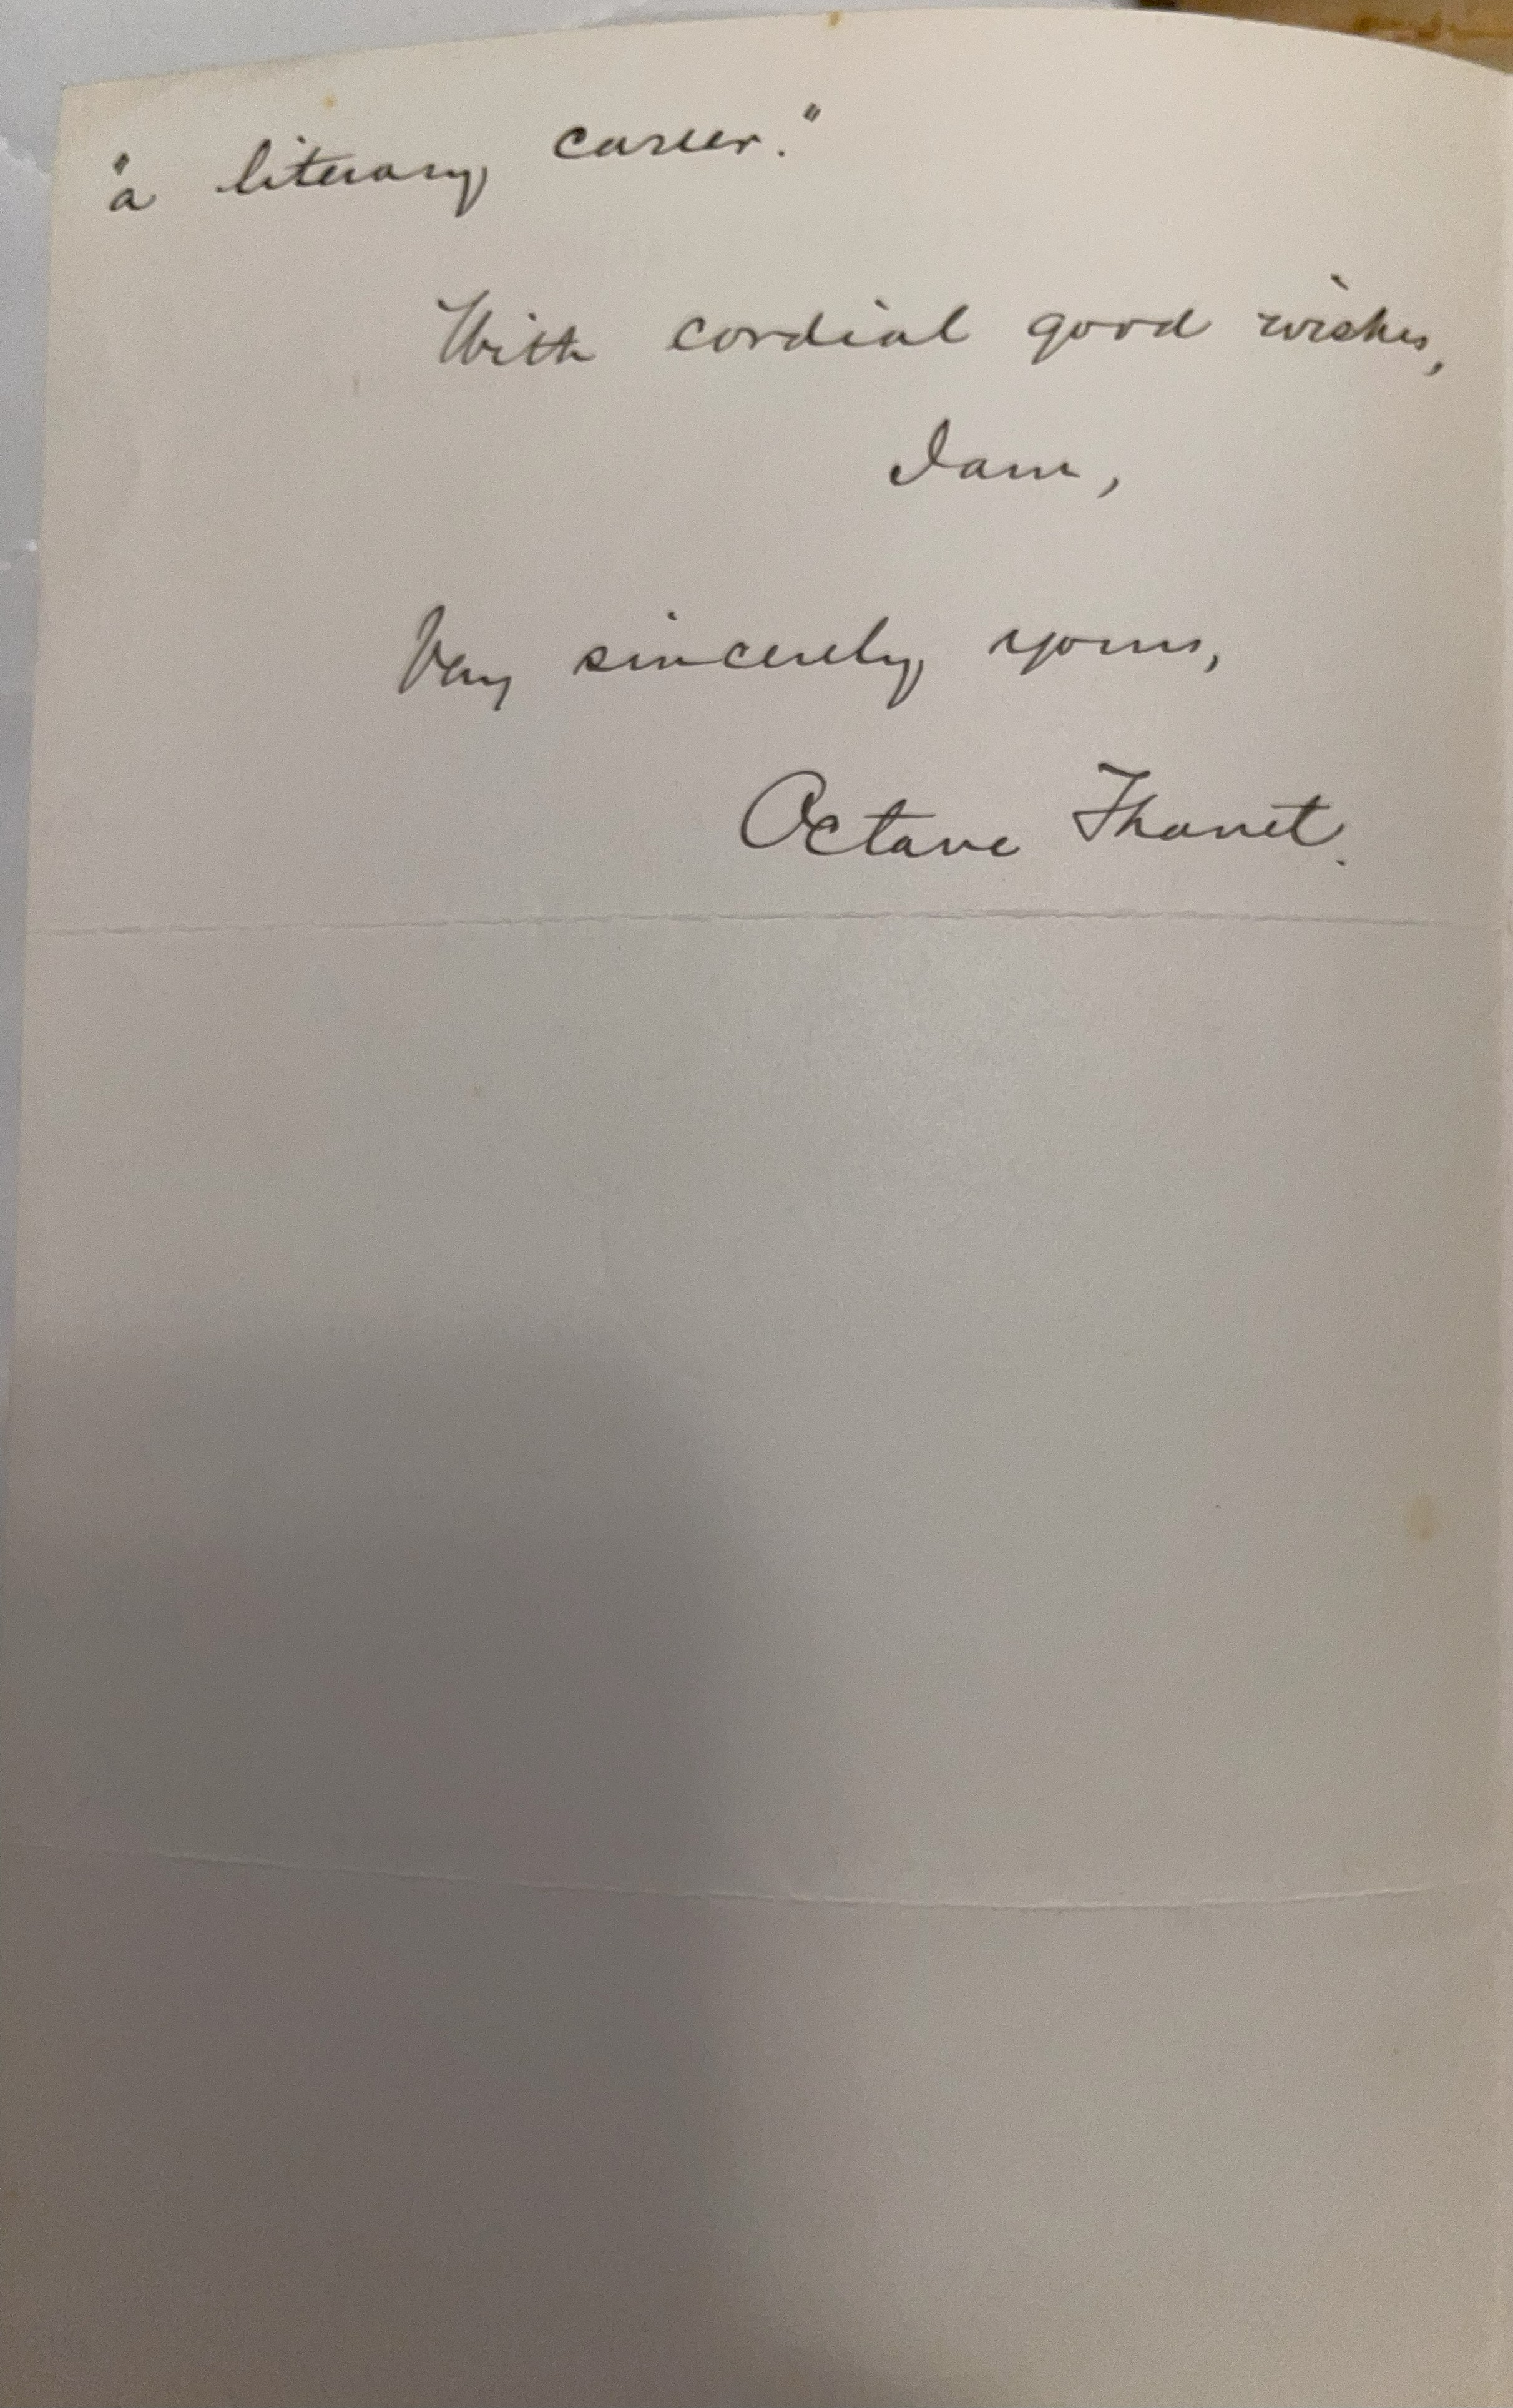 "a literary career."
With cordial good wishes,
I am,
Very sincerely yours,
Octave Thanet.